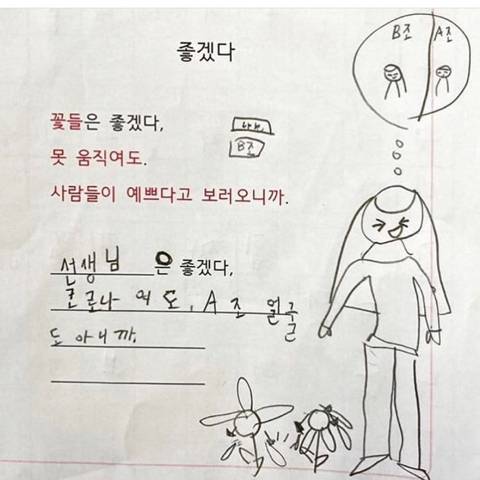 좋겠다
B조 A조
꽃들은 좋겠다,
못 움직여도.
B조
사람들이 예쁘다고 보러오니까.
선생님은 좋겠다,
코로나 여도, A조 얼굴
도 아니까.